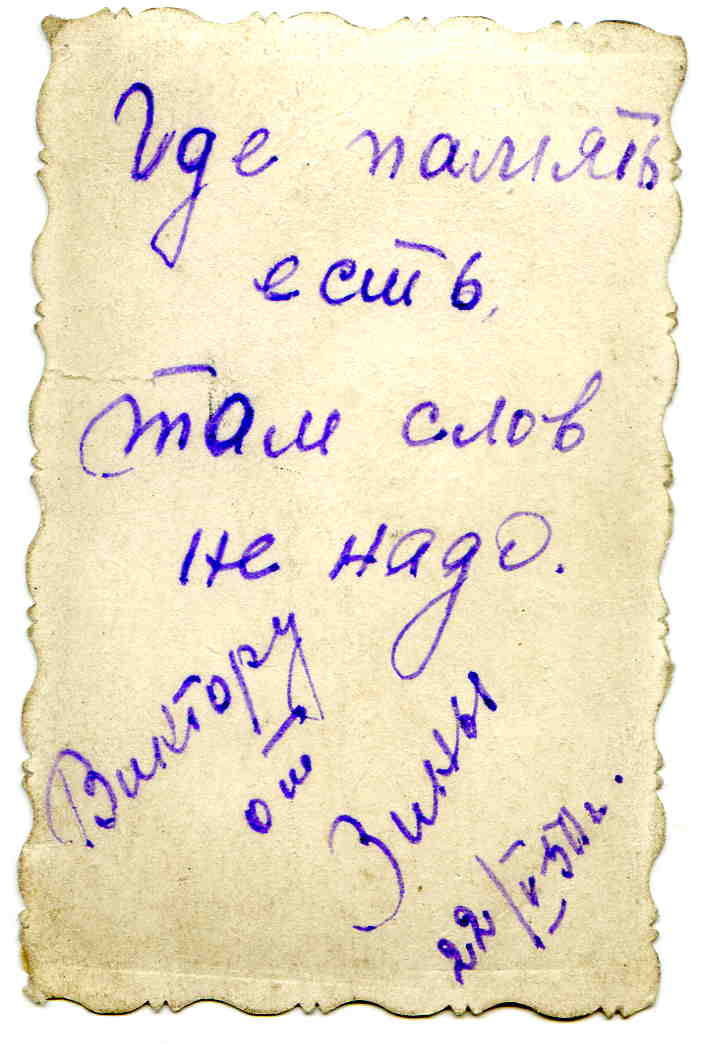 Где память
есть,
там слов
не надо.
Виктору
от
Зины
22/V 50 г.